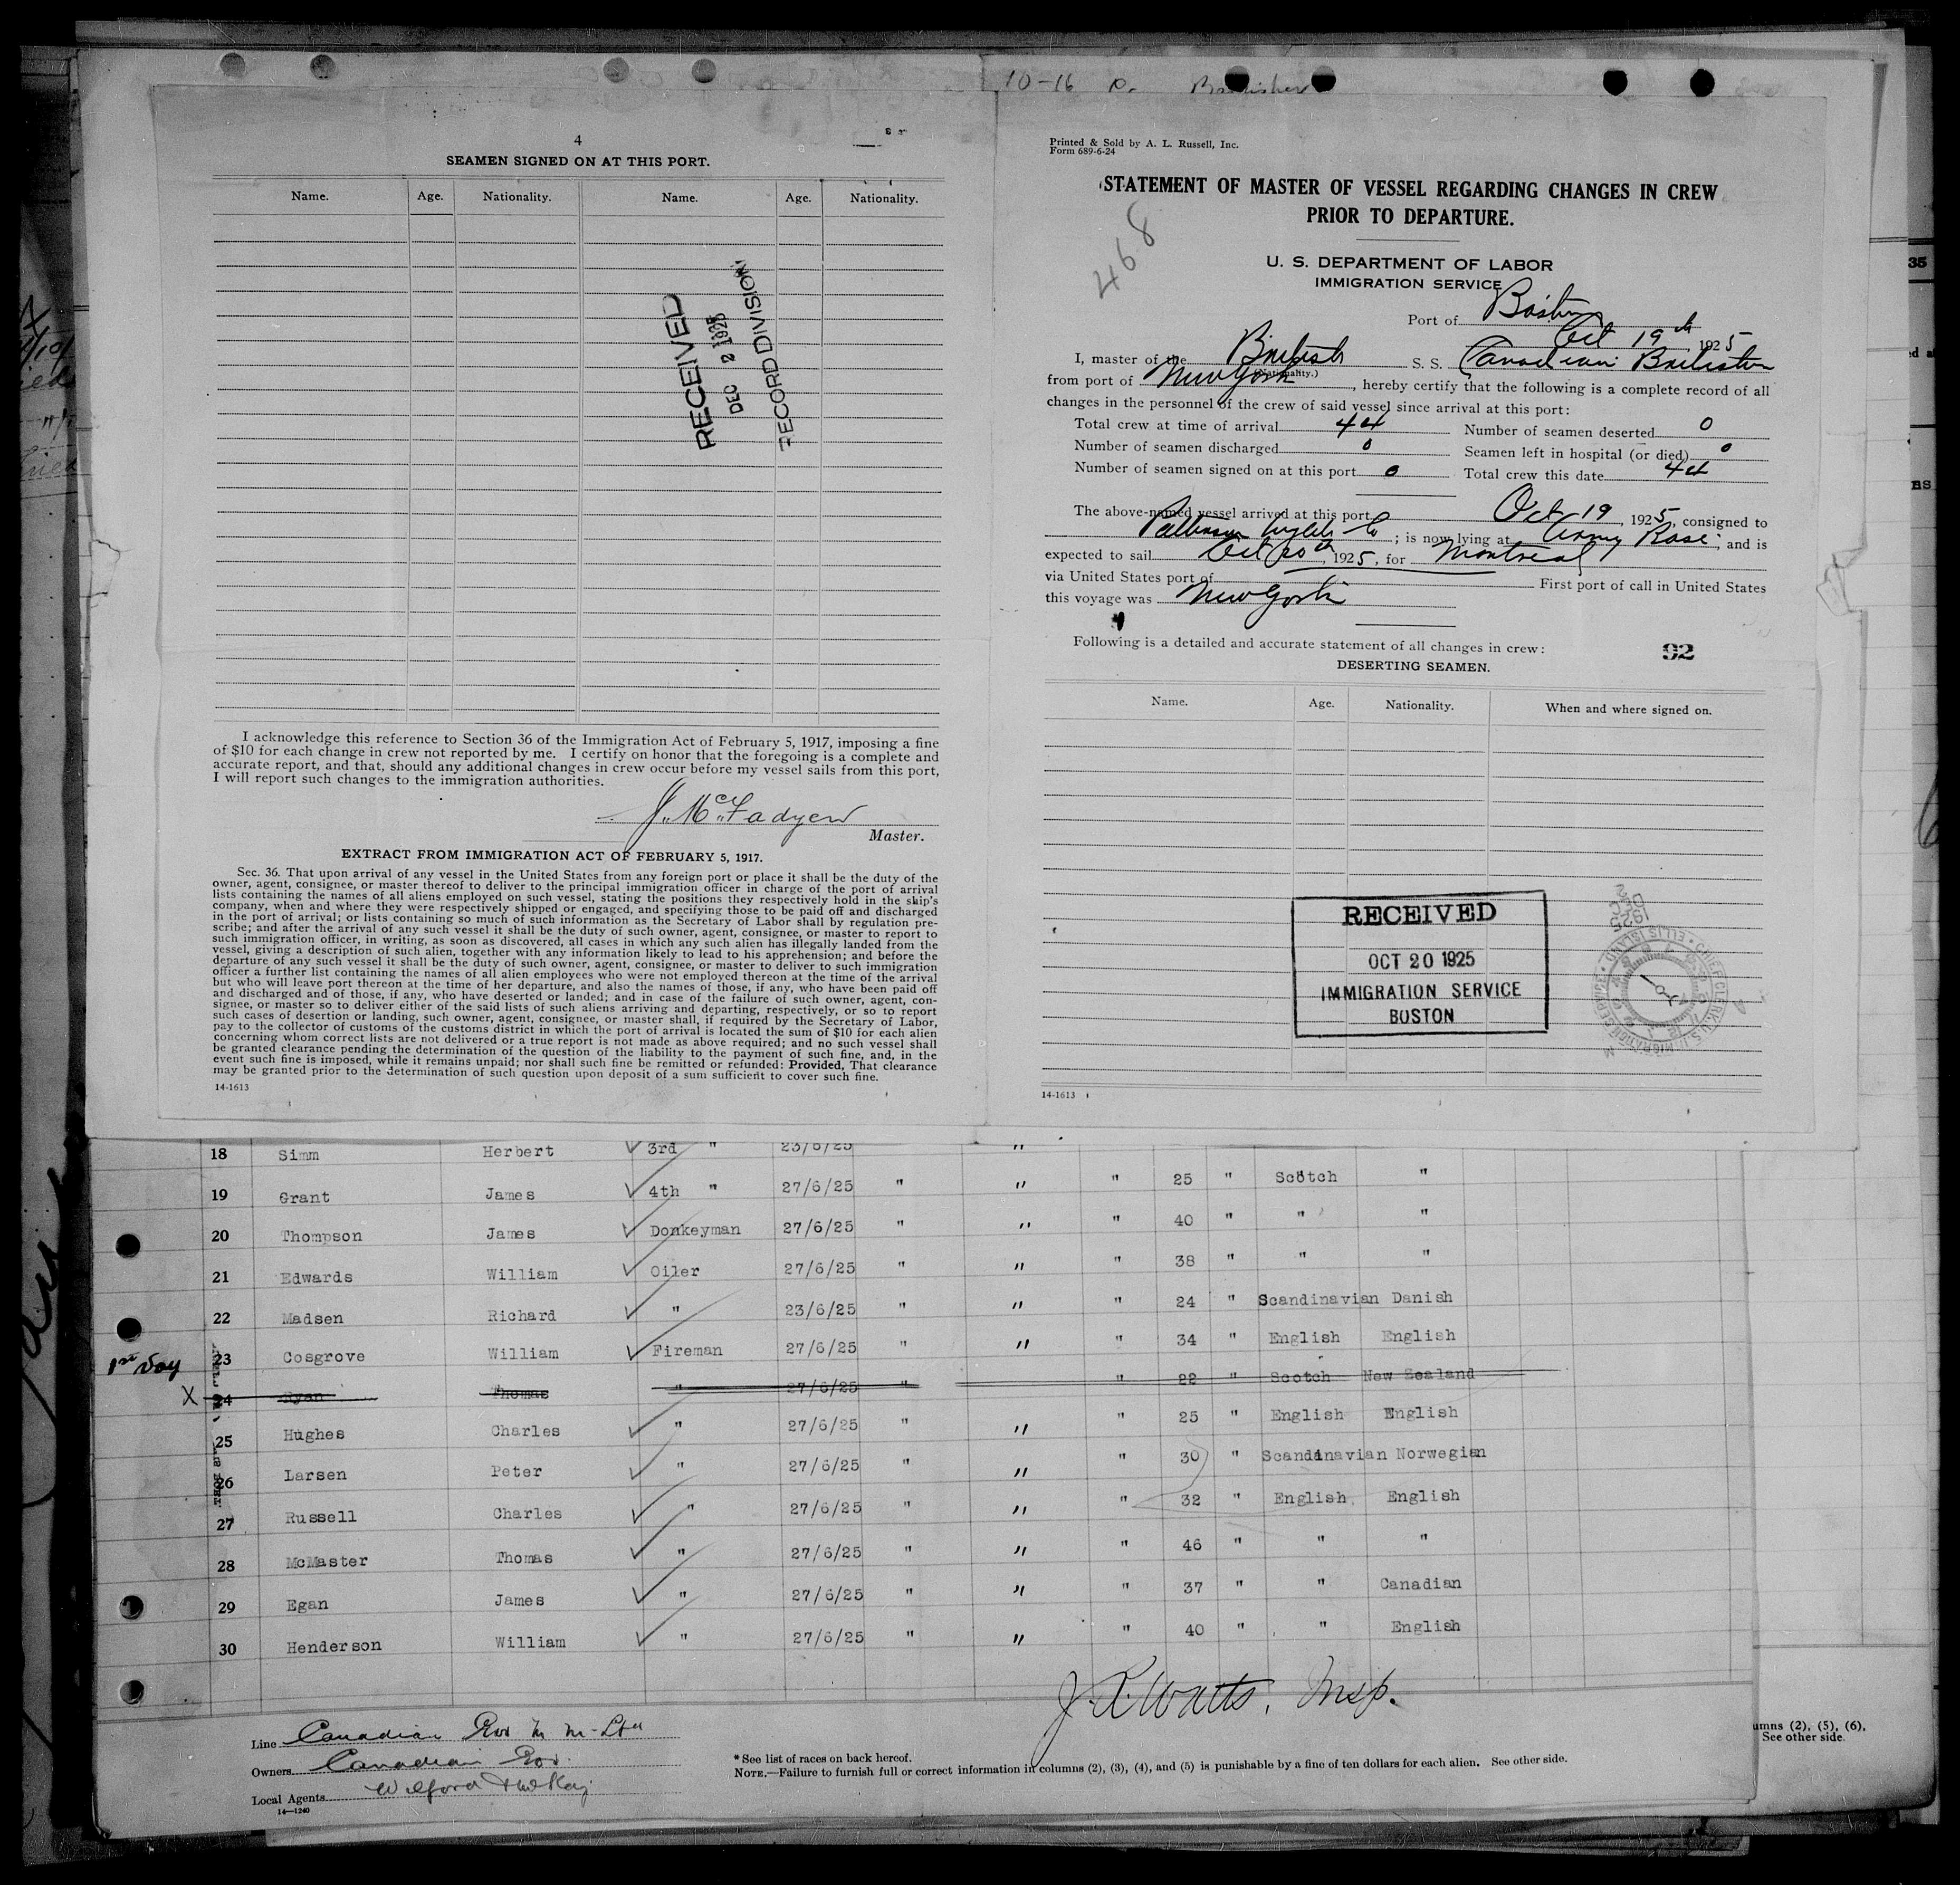 10-16
4
SEAMEN SIGNED ON AT THIS PORT.
Name. Age. Nationality. Name. Age. Nationality.
RECEIVED
DEC 2 1925
RECORD DIVISION
I acknowledge this reference to Section 36 of the Immigration Act of February 5, 1917, imposing a fine
of $10 for each change in crew not reported by me. I certify on honor that the foregoing is a complete and
accurate report, and that, should any additional changes in crew occur before my vessel sails from this port,
I will report such changes to the immigration authorities.
J. McFadyen
Master.
EXTRACT FROM IMMIGRATION ACT OF FEBRUARY 5, 1917.
Sec. 36. That upon arrival of any vessel in the United States from any foreign port or place it shall be the duty of the
owner, agent, consignee, or master thereof to deliver to the principal immigration officer in charge of the port of arrival
lists containing the names of all aliens employed on such vessel, stating the positions they respectively hold in the skip's
company, when and where they were respectively shipped or engaged, and specifying those to be paid off and discharged
in the port of arrival; or lists containing so much of such information as the Secretary of Labor shall by regulation pre-
scribe; and after the arrival of any such vessel it shall be the duty of such owner, agent, consignee, or master to report to
such immigration officer, in writing, as soon as discovered, all cases in which any such alien has illegally landed from the
vessel, giving a description of such alien, together with any information likely to lead to his apprehension; and before the
departure of any such vessel it shall be the duty of such owner, agent, consignee, or master to deliver to such immigration
officer a further list containing the names of all alien employees who were not employed thereon at the time of the arrival
but who will leave port thereon at the time of her departure, and also the names of those, if any, who have been paid off
and discharged and of those, if any, who have deserted or landed; and in case of the failure of such owner, agent, con-
signee, or master so to deliver either of the said lists of such aliens arriving and departing, respectively, or so to report
such cases of desertion or landing, such owner, agent, consignee, or master shall, if required by the Secretary of Labor,
pay to the collector of customs of the customs district in which the port of arrival is located the sum of $10 for each alien
concerning whom correct lists are not delivered or a true report is not made as above required; and no such vessel shall
be granted clearance pending the determination of the question of the liability to the payment of such fine, and, in the
event such fine is imposed, while it remains unpaid; nor shall such fine be remitted or refunded: Provided, That clearance
may be granted prior to the determination of such question upon deposit of a sum sufficient to cover such fine.
14-1613
Printed & Sold by A. L. Russell, Inc.
Form 689-6-24
STATEMENT OF MASTER OF VESSEL REGARDING CHANGES IN CREW
PRIOR TO DEPARTURE.
468
U. S. DEPARTMENT OF LABOR
IMMIGRATION SERVICE
Port of Boston
Oct 19th 1925
I, master of the British S. S. Canadian
(Nationality.)
from port of New York, hereby certify that the following is a complete record of all
changes in the personnel of the crew of said vessel since arrival at this port:
Total crew at time of arrival 44 Number of seamen deserted 0
Number of seamen discharged 0 Seamen left in hospital (or died) 0
Number of seamen signed on at this port 0 Total crew this date 44
The above-named vessel arrived at this port Oct 19, 1925, consigned to
; is now lying at Army Base; and is
expected to sail Oct 20th, 1925, for Montreal
via United States port of First port of call in United States
this voyage was New York
Following is a detailed and accurate statement of all changes in crew:
92
DESERTING SEAMEN.
Name. Age. Nationality. When and where signed on.
RECEIVED
OCT 20 1925
IMMIGRATION SERVICE
BOSTON
DEC 2
1925
CHIEF CLERK U.S. IMMIGRATION SERVICE ELLIS ISLAND
14-1613
18 Simm Herbert 3rd " 23/6/25 "
19 Grant James 4th " 27/6/25 " " " 25 " Scotch "
20 Thompson James Donkeyman 27/6/25 " " " 40 " " "
21 Edwards William Oiler 27/6/25 " " " 38 " " "
22 Madsen Richard " 23/6/25 " " " 24 " Scandinavian Danish
23 Cosgrove William Fireman 27/6/25 " " " 34 " English English
1st Voy
X 24 Ryan Thomas " 27/6/25 " " 22 " Scotch New Zealand
25 Hughes Charles " 27/6/25 " " " 25 " English English
26 Larsen Peter " 27/6/25 " " " 30 " Scandinavian Norwegian
27 Russell Charles " 27/6/25 " " " 32 " English English
28 McMaster Thomas " 27/6/25 " " " 46 " " "
29 Egan James " 27/6/25 " " " 37 " " Canadian
30 Henderson William " 27/6/25 " " " 40 " " English
J. R. Watts, Insp.
Line Canadian Gov M M - Ltd
Owners Canadian Gov.
Local Agents
14-1240
* See list of races on back hereof.
NOTE.—Failure to furnish full or correct information in columns (2), (3), (4), and (5) is punishable by a fine of ten dollars for each alien. See other side.
umns (2), (5), (6),
See other side.
35